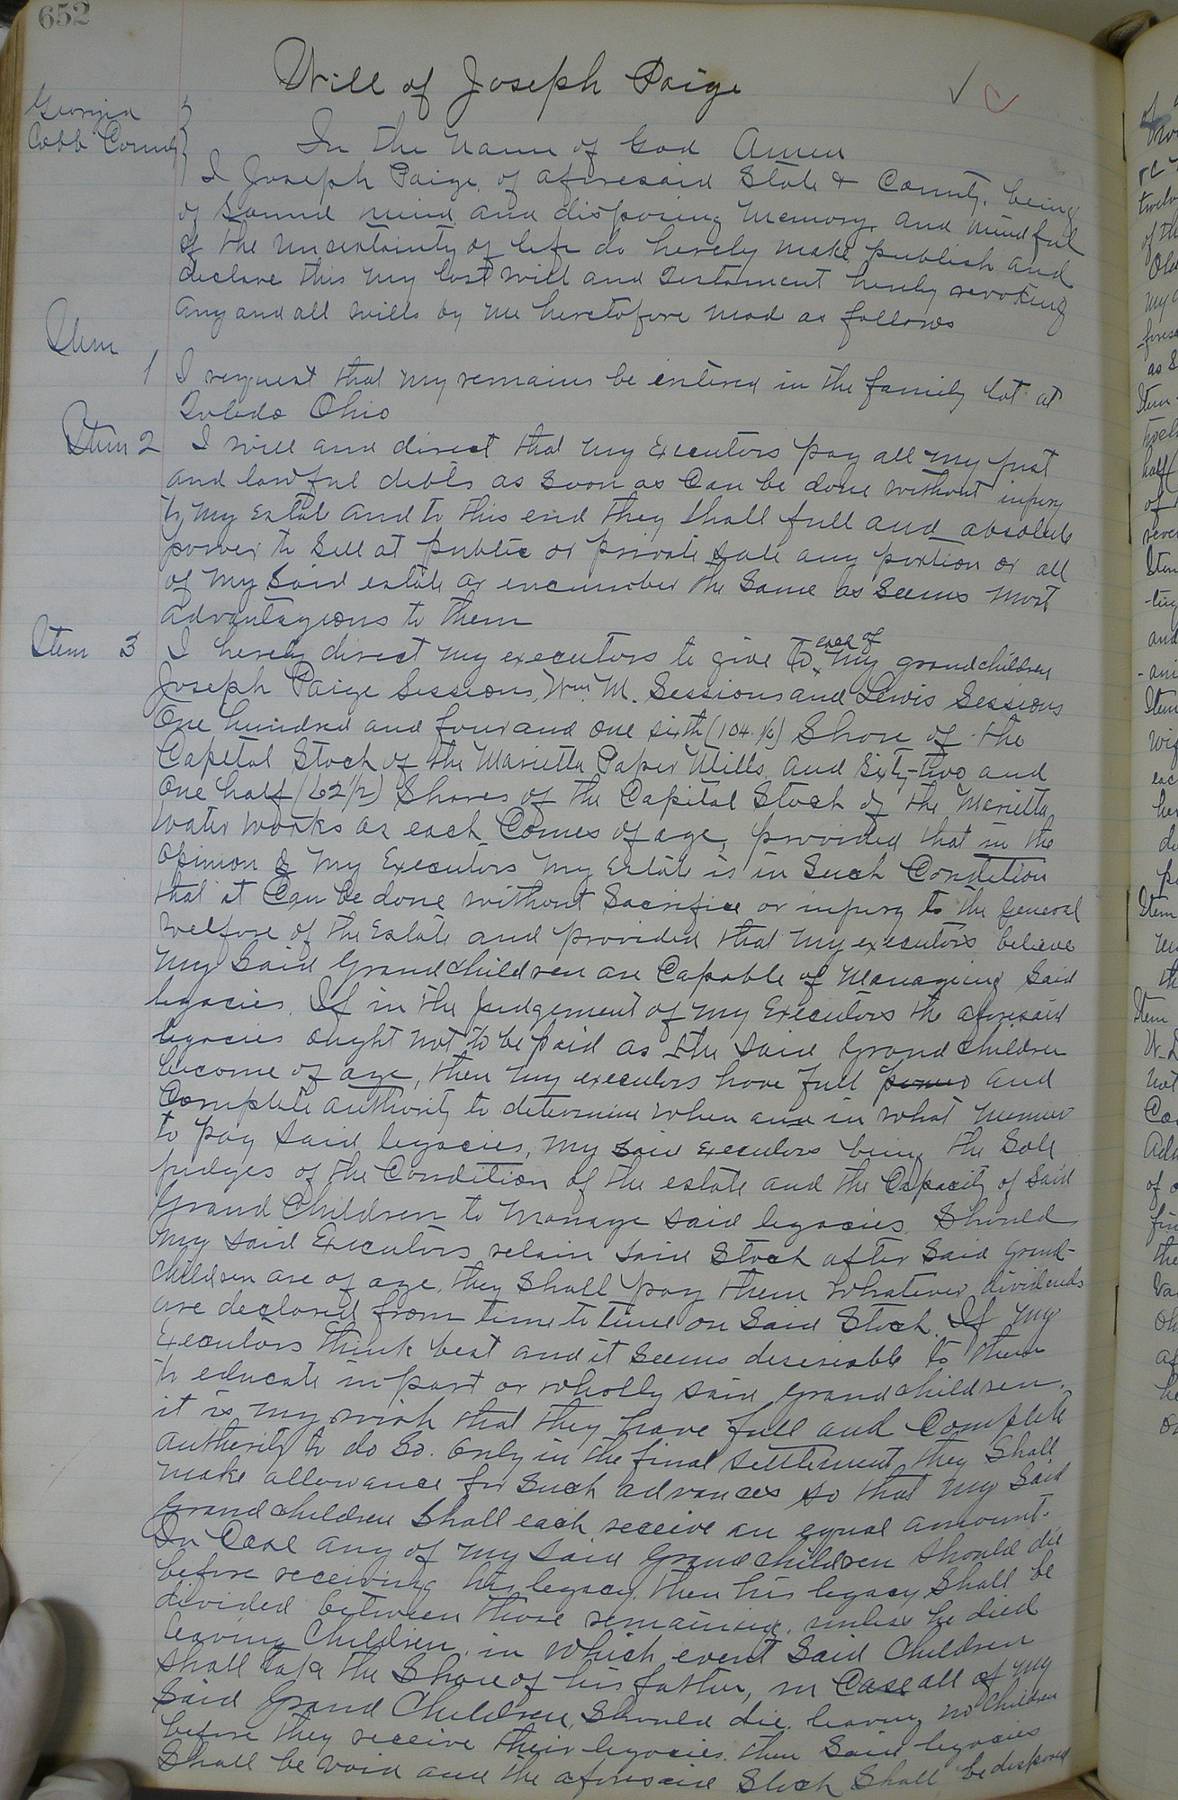 652
Will of Joseph Paige
Georgia
Cobb County
In the Name of God Amen
I Joseph Paige, of aforesaid State & County, being
of Sound mind and disposing Memory, and mindful
of the uncertainty of life do hereby make publish and
declare this my last will and Testament hereby revoking
any and all wills by me heretofore mad as follows
Item 1 I request that my remains be entered in the family lot at
Toledo Ohio
Item 2 I will and direct that my Executors pay all my just
and lawful debts as soon as Can be done without injury
to my Estate and to this end they shall full and absolute
power to Sell at public or private sale any portion or all
of my Said estate or encumber the Same as Seems most
advantageous to them
Item 3 I hereby direct my executors to give to each of my grandchildren
Joseph Paige Sessions, Wm M. Sessions and Lewis Sessions
One hundred and four and one sixth (104 1/6) Share of the
Capital Stock of the Marietta Paper Mills and Sixty-two and
One half (62 1/2) Shares of the Capital Stock of the Marietta
Water Works as each Comes of age, provided that in the
opinion of my Executors my Estate is in Such Condition
that it Can be done without Sacrifice or injury to the general
welfare of the Estate and provided that my executors believe
my Said Grandchildren are Capable of Managing Said
legacies. If in the judgement of my Executors the aforesaid
legacies ought not to be paid as the said Grandchildren
become of age, then my executors have full power and
Complete authority to determine when and in what manner
to pay said legacies, my said Executors being the Sole
judges of the Condition of the estate and the Capacity of Said
Grand Children to Manage said legacies. Should
my said Executors retain said Stock after Said Grand-
children are of age, they Shall pay them whatever dividends
are declared from time to time on Said Stock. If my
Executors think best and it Seems desireable to them
to educate in part or wholly said grandchildren.
it is my wish that they have full and Complete
authority to do so. Only in the final Settlement, they Shall
make allowance for Such advances so that my Said
Grandchildren Shall each receive an equal amount.
In Case any of my said Grandchildren should die
before receiving his legacy, then his legacy Shall be
divided between those remaining, unless he died
leaving Children, in which event Said Children
Shall take the Share of his father, in Case all of my
Said Grand Children, Should die, leaving no Children
before they receive their legacies, then Said legacies
Shall be void and the aforesaid Stock Shall be disposed